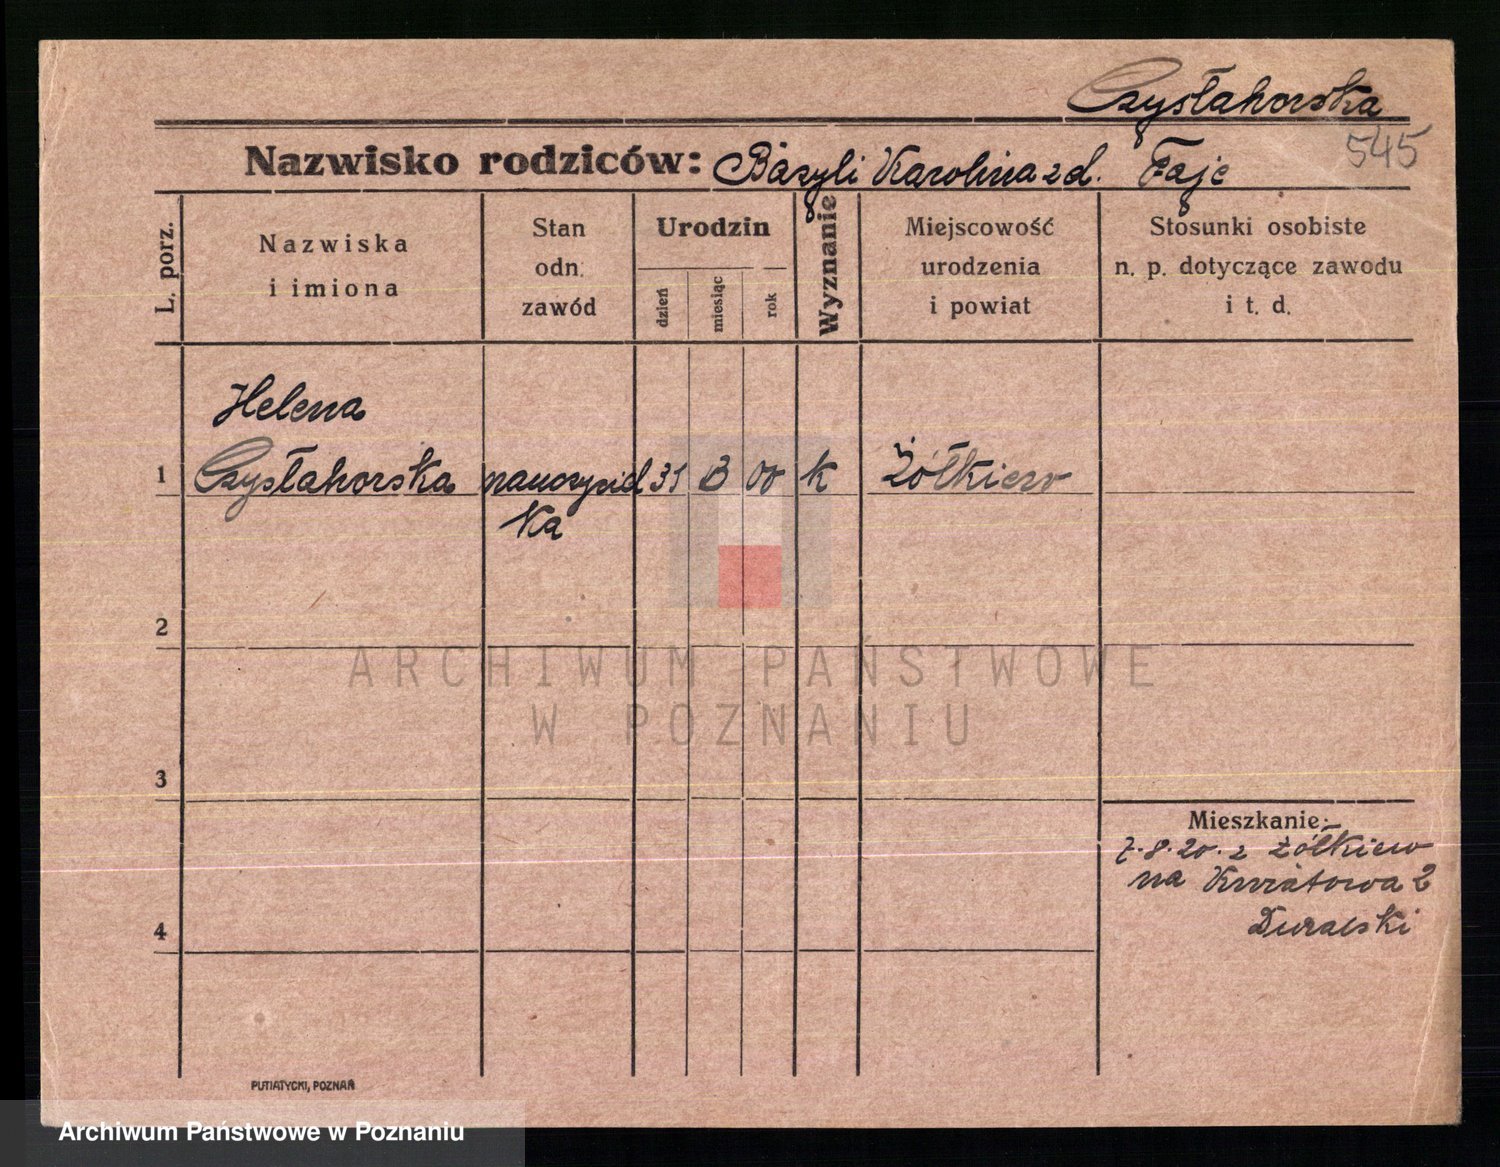 Czysłahorska
545
Nazwisko rodziców: Bazyli Karolina z d. Faje
L. porz.
Nazwiska
i imiona
Stan
odn.
zawód
Urodzin
dzień
miesiąc
rok
Wyznanie
Miejscowość
urodzenia
i powiat
Stosunki osobiste
n. p. dotyczące zawodu
i t. d.
Helena
1 Czysłahorska nauczyciel 31 00 k Żółkiew
ka
2
ARCHIWUM PAŃSTWOWE
W POZNANIU
3
Mieszkanie:
7.8.20. z Żółkiew
na Kwiatowa 2
4
PUTIATYCKI, POZNAŃ
Archiwum Państwowe w Poznaniu